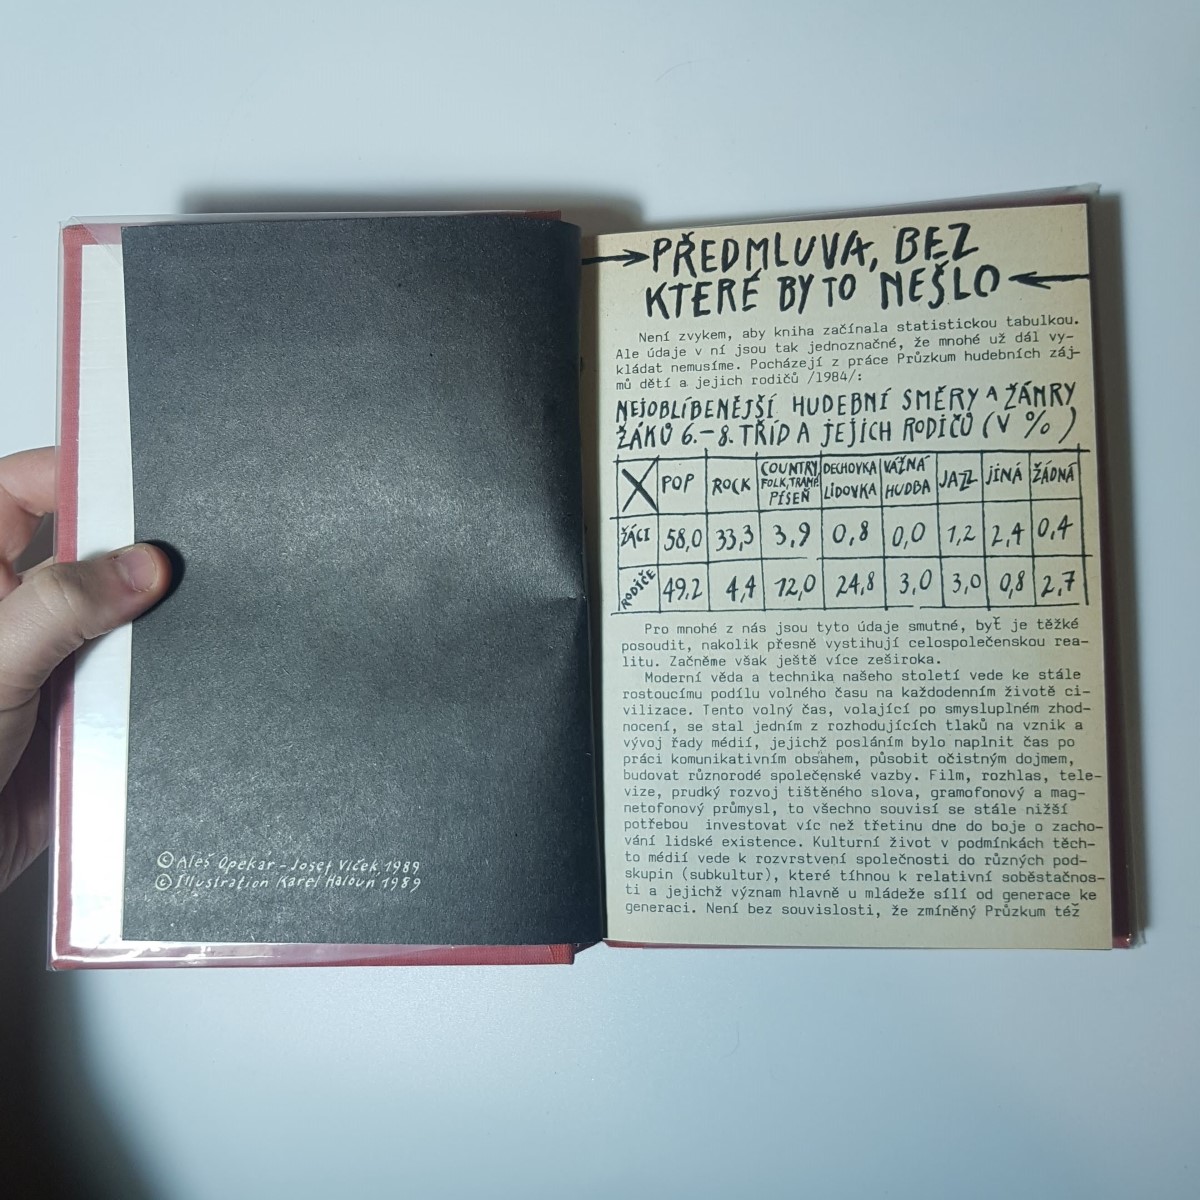 © Aleš Opekar - Josef Vlček 1989
© Illustration Karel Haloun 1989
PŘEDMLUVA, BEZ
KTERÉ BY TO NEŠLO
Není zvykem, aby kniha začínala statistickou tabulkou.
Ale údaje v ní jsou tak jednoznačné, že mnohé už dál vy-
kládat nemusíme. Pocházejí z práce Průzkum hudebních záj-
mů dětí a jejich rodičů /1984/:
NEJOBLÍBENĚJŠÍ HUDEBNÍ SMĚRY A ŽÁNRY
ŽÁKŮ 6.-8. TŘÍD A JEJICH RODIČŮ (V %)
X POP ROCK COUNTRY, FOLK, TRAMP. PÍSEŇ DECHOVKA LIDOVKA VÁŽNÁ HUDBA JAZZ JINÁ ŽÁDNÁ
ŽÁCI 58,0 33,3 3,9 0,8 0,0 1,2 2,4 0,4
RODIČE 49,2 4,4 12,0 24,8 3,0 3,0 0,8 2,7
Pro mnohé z nás jsou tyto údaje smutné, byť je těžké
posoudit, nakolik přesně vystihují celospolečenskou rea-
litu. Začněme však ještě více zeširoka.
Moderní věda a technika našeho století vede ke stále
rostoucímu podílu volného času na každodenním životě ci-
vilizace. Tento volný čas, volající po smysluplném zhod-
nocení, se stal jedním z rozhodujících tlaků na vznik a
vývoj řady médií, jejichž posláním bylo naplnit čas po
práci komunikativním obsahem, působit očistným dojmem,
budovat různorodé společenské vazby. Film, rozhlas, tele-
vize, prudký rozvoj tištěného slova, gramofonový a mag-
netofonový průmysl, to všechno souvisí se stále nižší
potřebou investovat víc než třetinu dne do boje o zacho-
vání lidské existence. Kulturní život v podmínkách těch-
to médií vede k rozvrstvení společnosti do různých pod-
skupin (subkultur), které tíhnou k relativní soběstačnos-
ti a jejichž význam hlavně u mládeže sílí od generace ke
generaci. Není bez souvislosti, že zmíněný Průzkum též